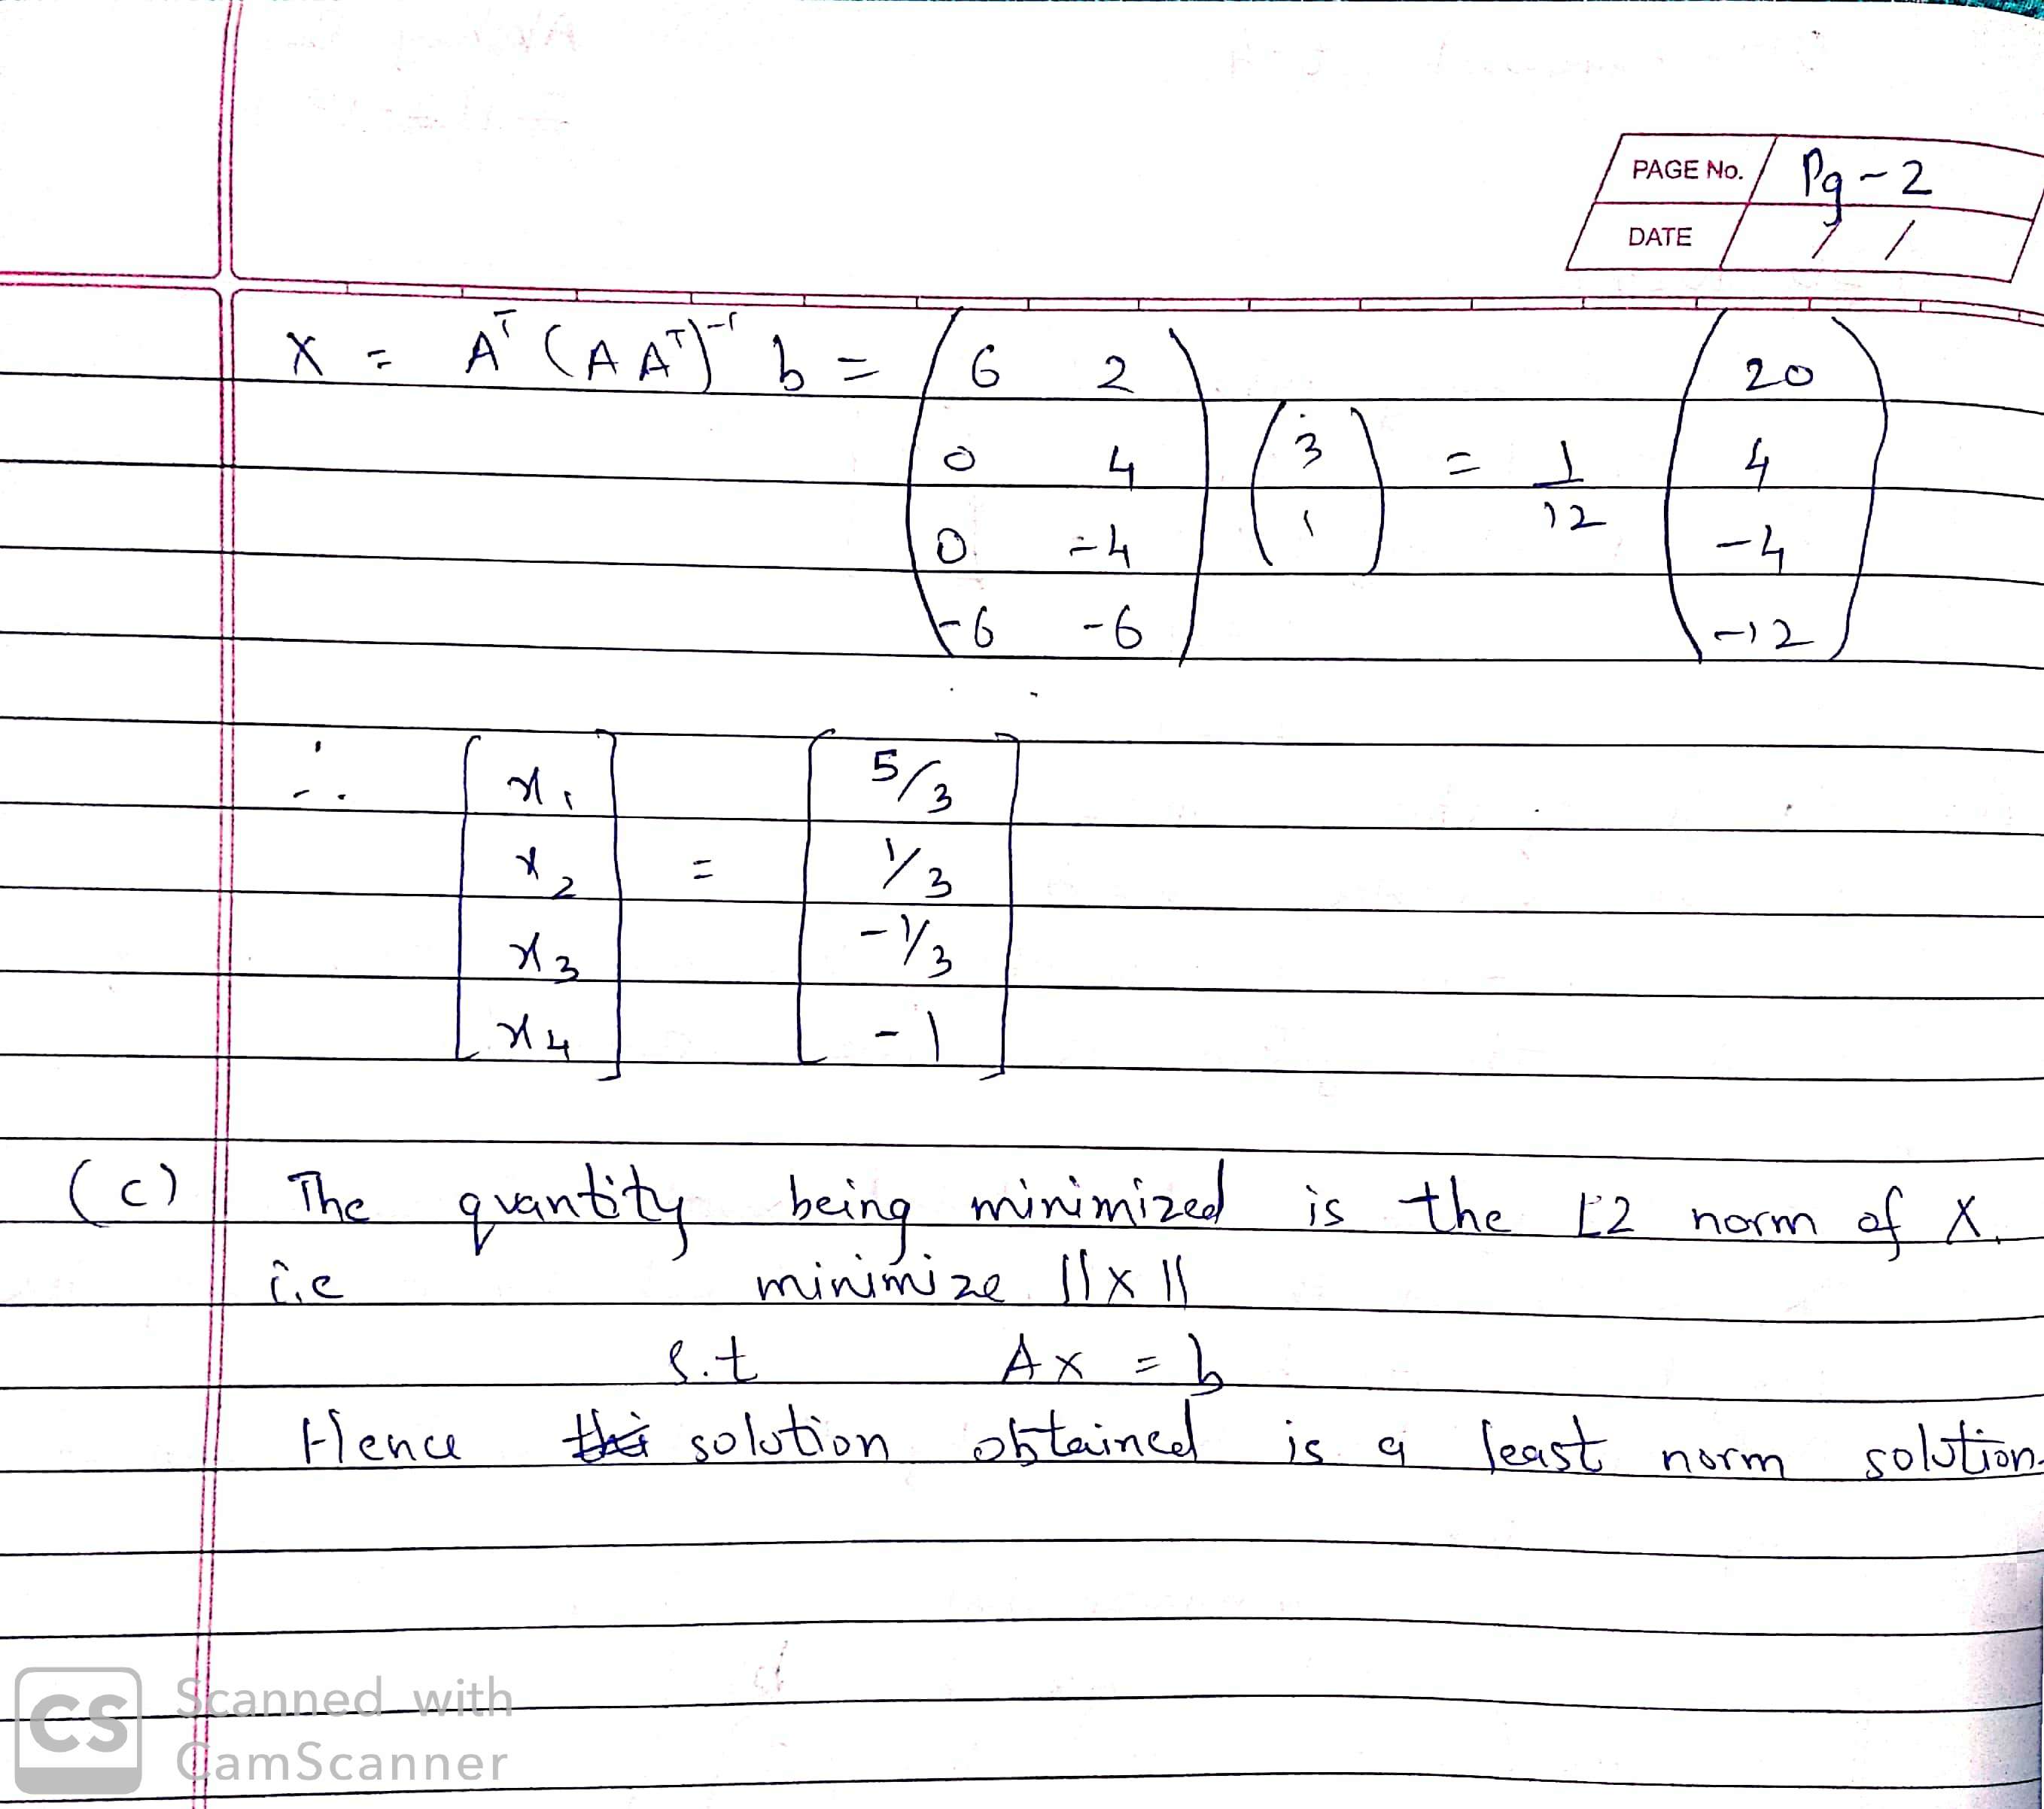 PAGE No. Pg-2
DATE / /
X = Aᵀ (A Aᵀ)⁻¹ b = ( 6 2 ; 0 4 ; 0 -4 ; -6 -6 ) ( 3 ; 1 ) = 1/12 ( 20 ; 4 ; -4 ; -12 )
∴ [ x₁ ; x₂ ; x₃ ; x₄ ] = [ 5/3 ; 1/3 ; -1/3 ; -1 ]
(c) The quantity being minimized is the L2 norm of X.
i.e minimize ||x||
s.t Ax = b
Hence solution obtained is a least norm solution.
CS Scanned with
CamScanner